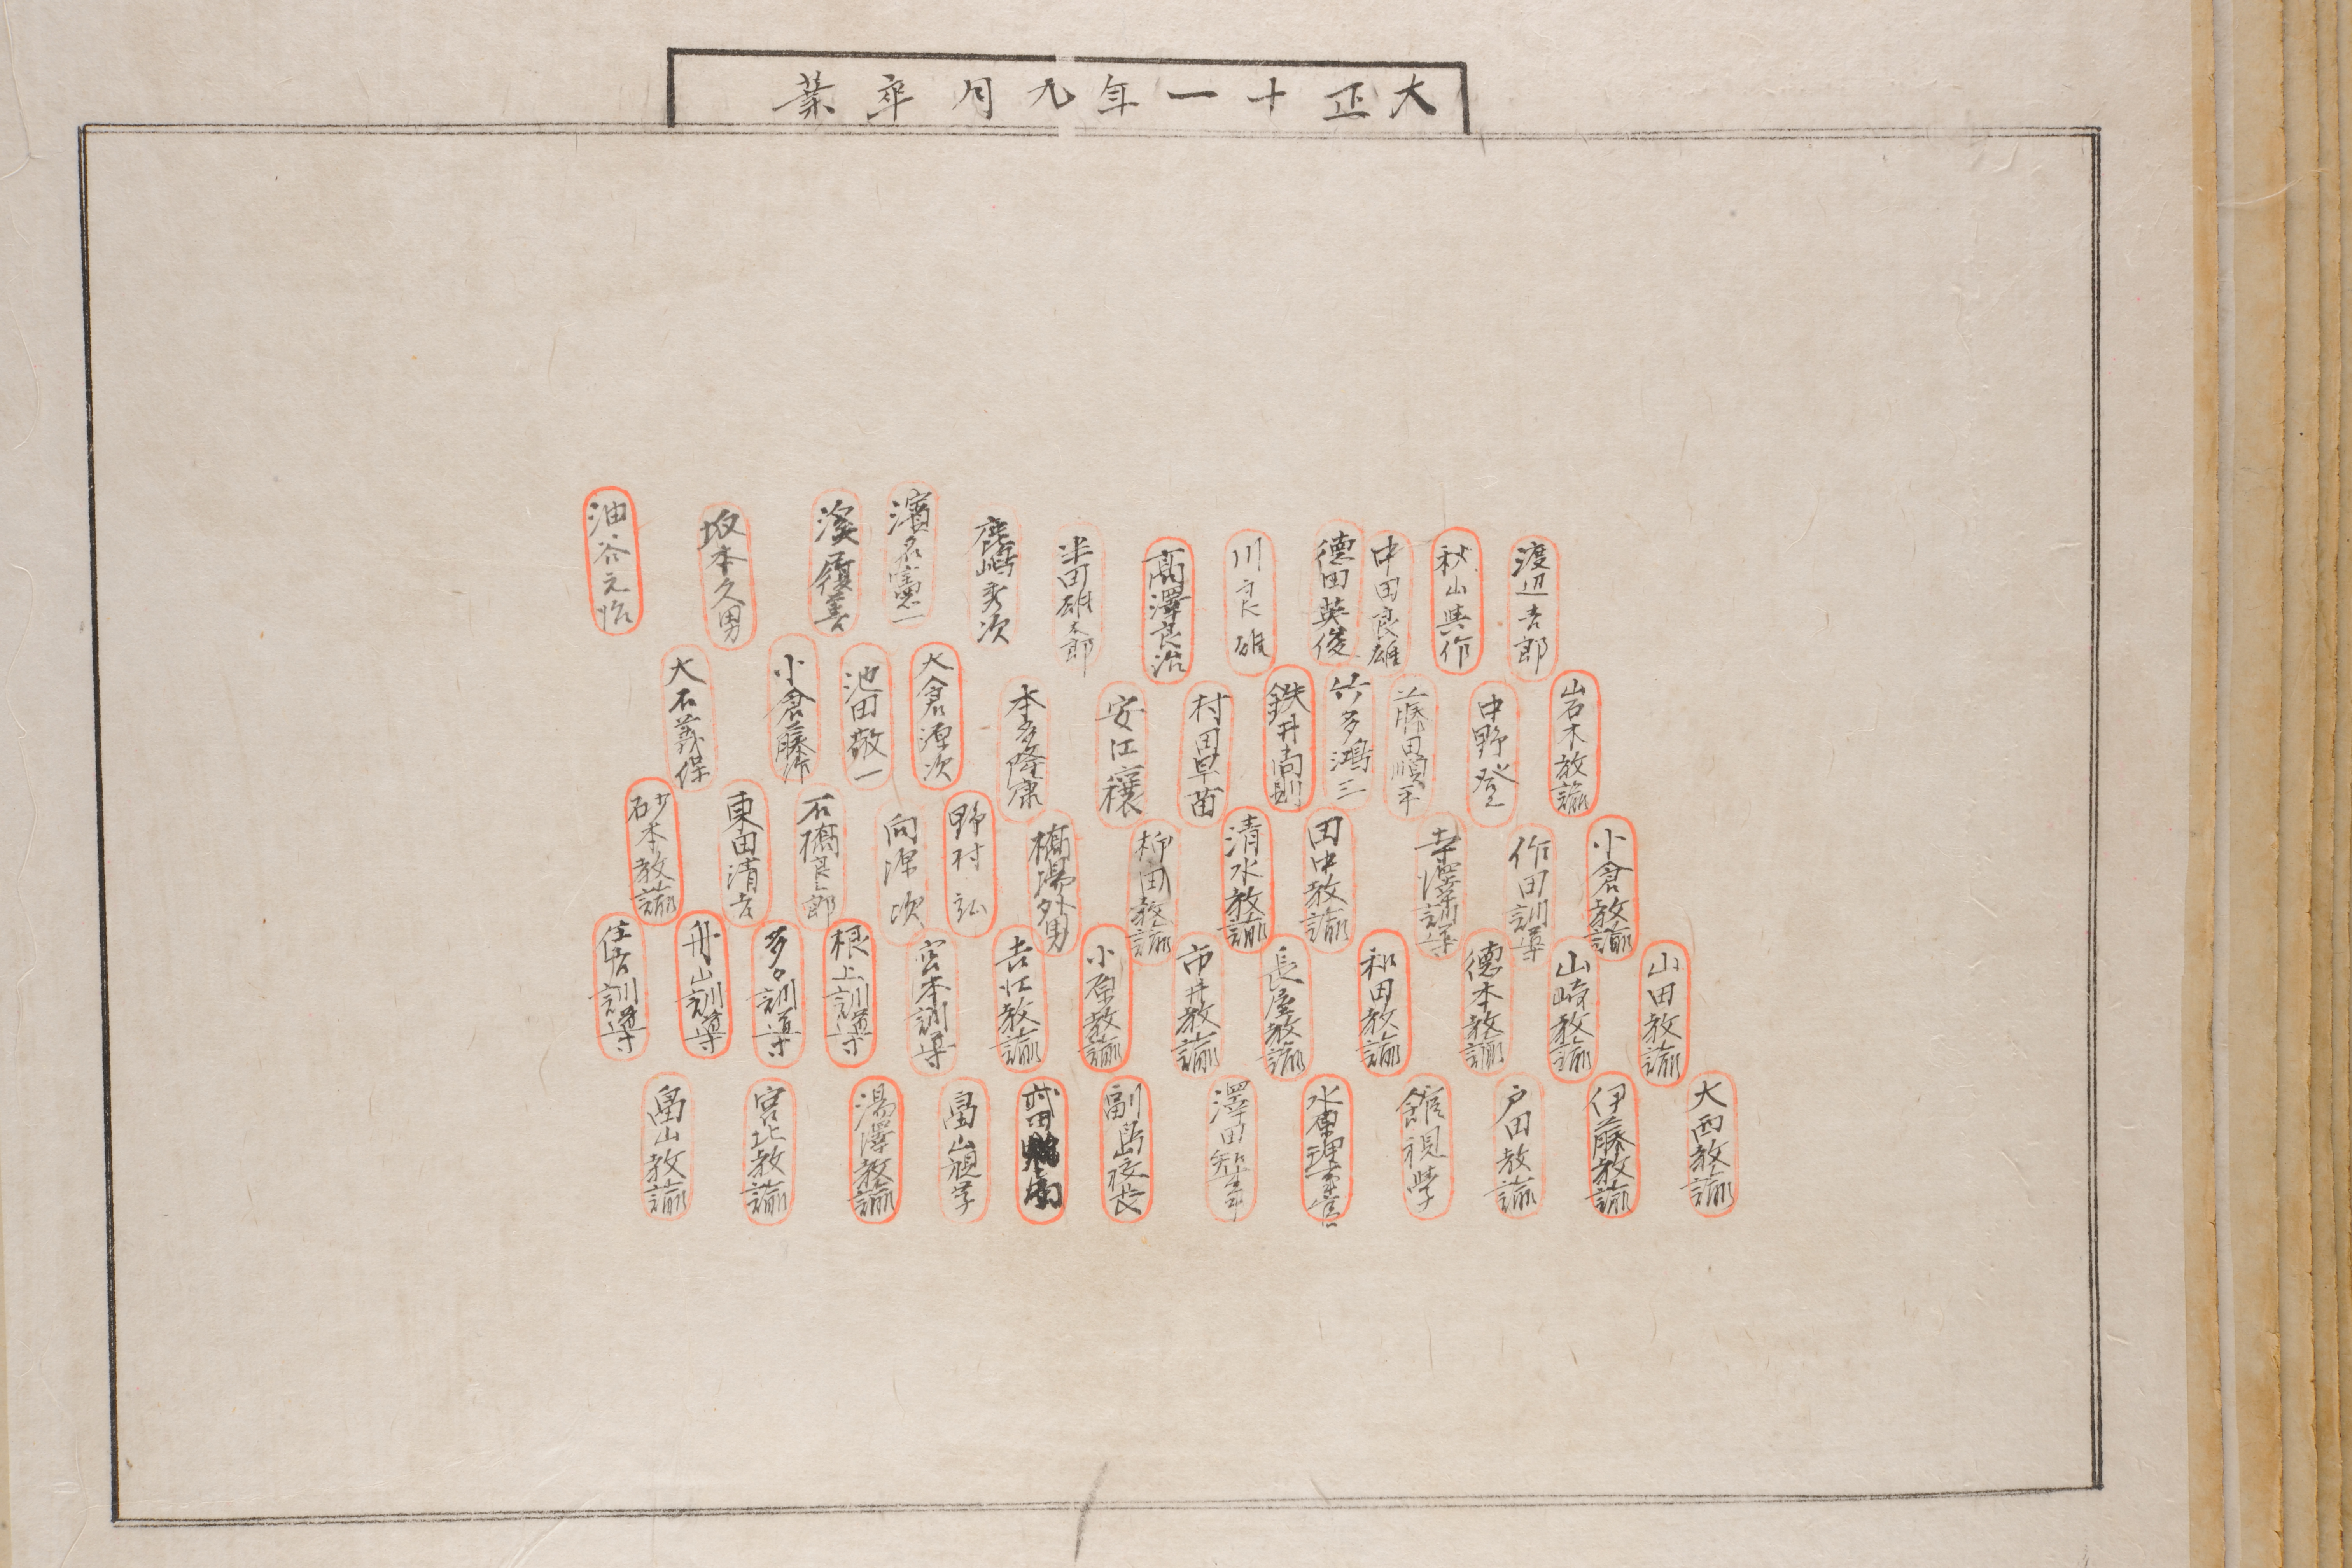 大正十一年九月卒業
渡辺吉郎
秋山與作
中田良雄
德田英俊
川良雄
髙澤良治
半田雄太郎
鹿嶋秀次
濱名憲一
溪順善
坂本久男
油谷元治
岩木教諭
中野登
藤田順平
竹多鴻三
鉄井尚則
村田早苗
安江穰
本多隆康
大倉源次
池田敬一
小倉藤作
大石義保
小倉教諭
作田訓導
寺澤訓導
田中教諭
清水教諭
柳田教諭
橋場外男
野村弘
向源次
石橋良郎
東田清吉
砂本教諭
山田教諭
山崎教諭
德本教諭
和田教諭
長屋教諭
市井教諭
小原教諭
吉江教諭
宮本訓導
根上訓導
多々訓導
舟山訓導
住吉訓導
大西教諭
伊藤教諭
戸田教諭
館視学
水原理事官
澤田知事
副島校長
武田
畠山視学
湯澤教諭
宮北教諭
畠山教諭